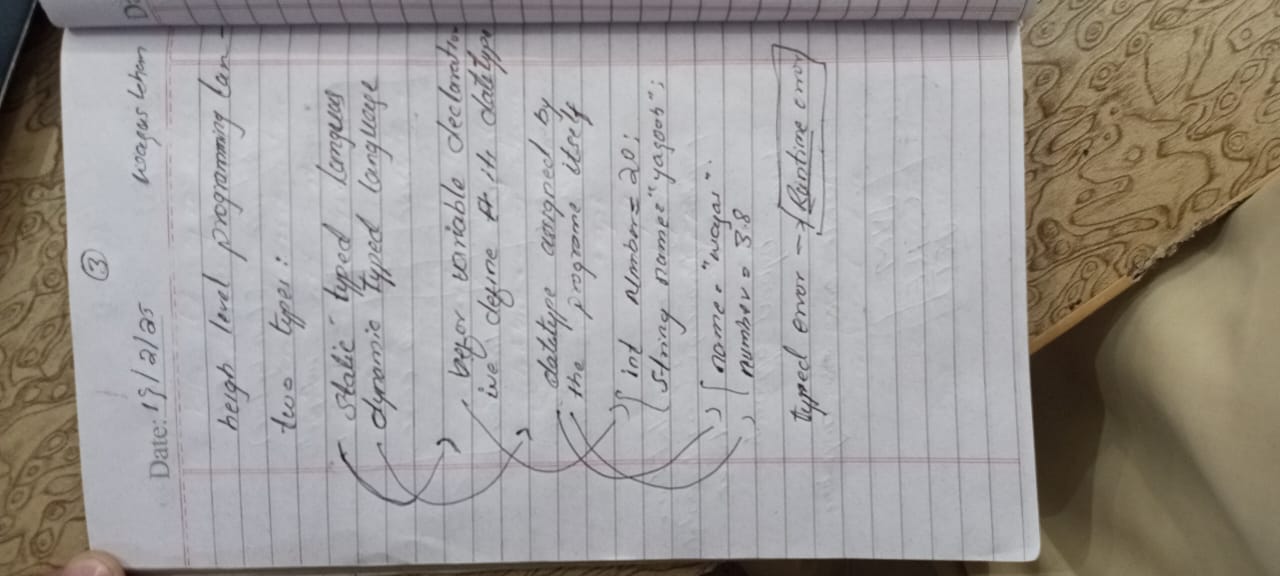 ③
Date: 19/2/25
heigh level programming lan-
two types:
static typed languag
dynamic typed language
befor variable declaration
we degine it datatype
datatype assigned by
the programe itself
int number = 20;
string name = "yaqoob";
name = "waqas".
number = 38
typed error → Runtime error